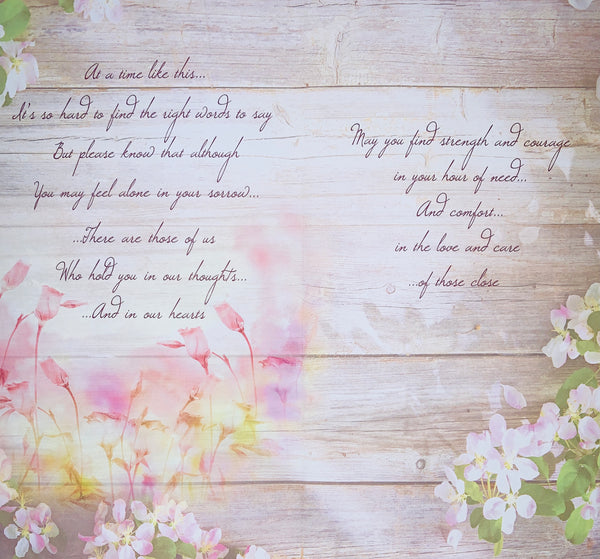 At a time like this...
It's so hard to find the right words to say
But please know that although
You may feel alone in your sorrow...
...There are those of us
Who hold you in our thoughts...
...And in our hearts
May you find strength and courage
in your hour of need...
And comfort...
in the love and care
...of those close